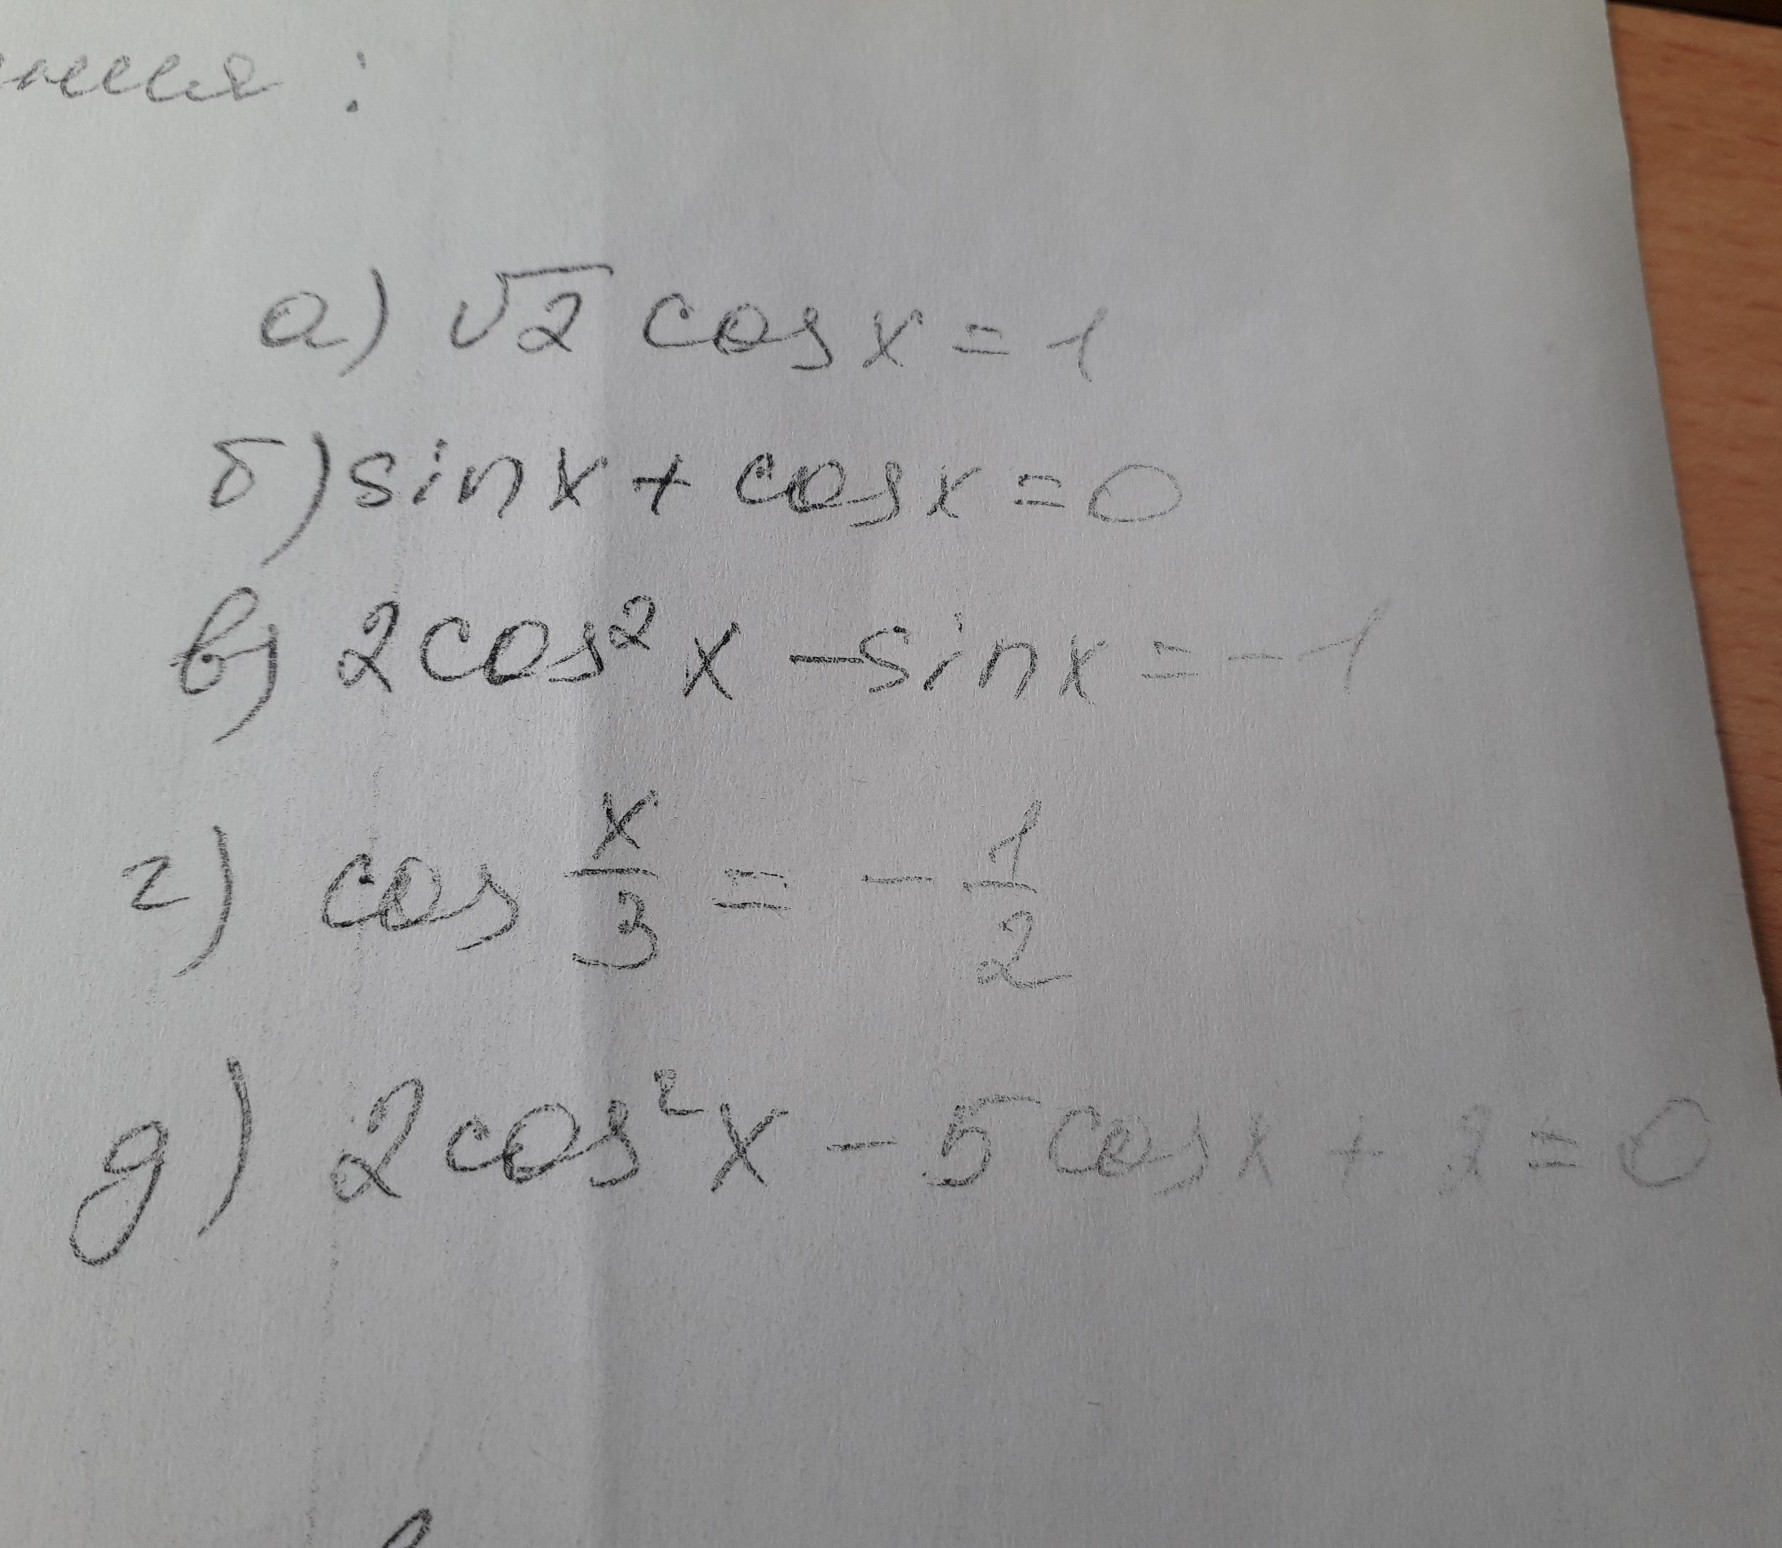 а) √2 cos x = 1
б) sin x + cos x = 0
в) 2 cos² x - sin x = -1
г) cos x/3 = - 1/2
д) 2 cos² x - 5 cos x + 2 = 0